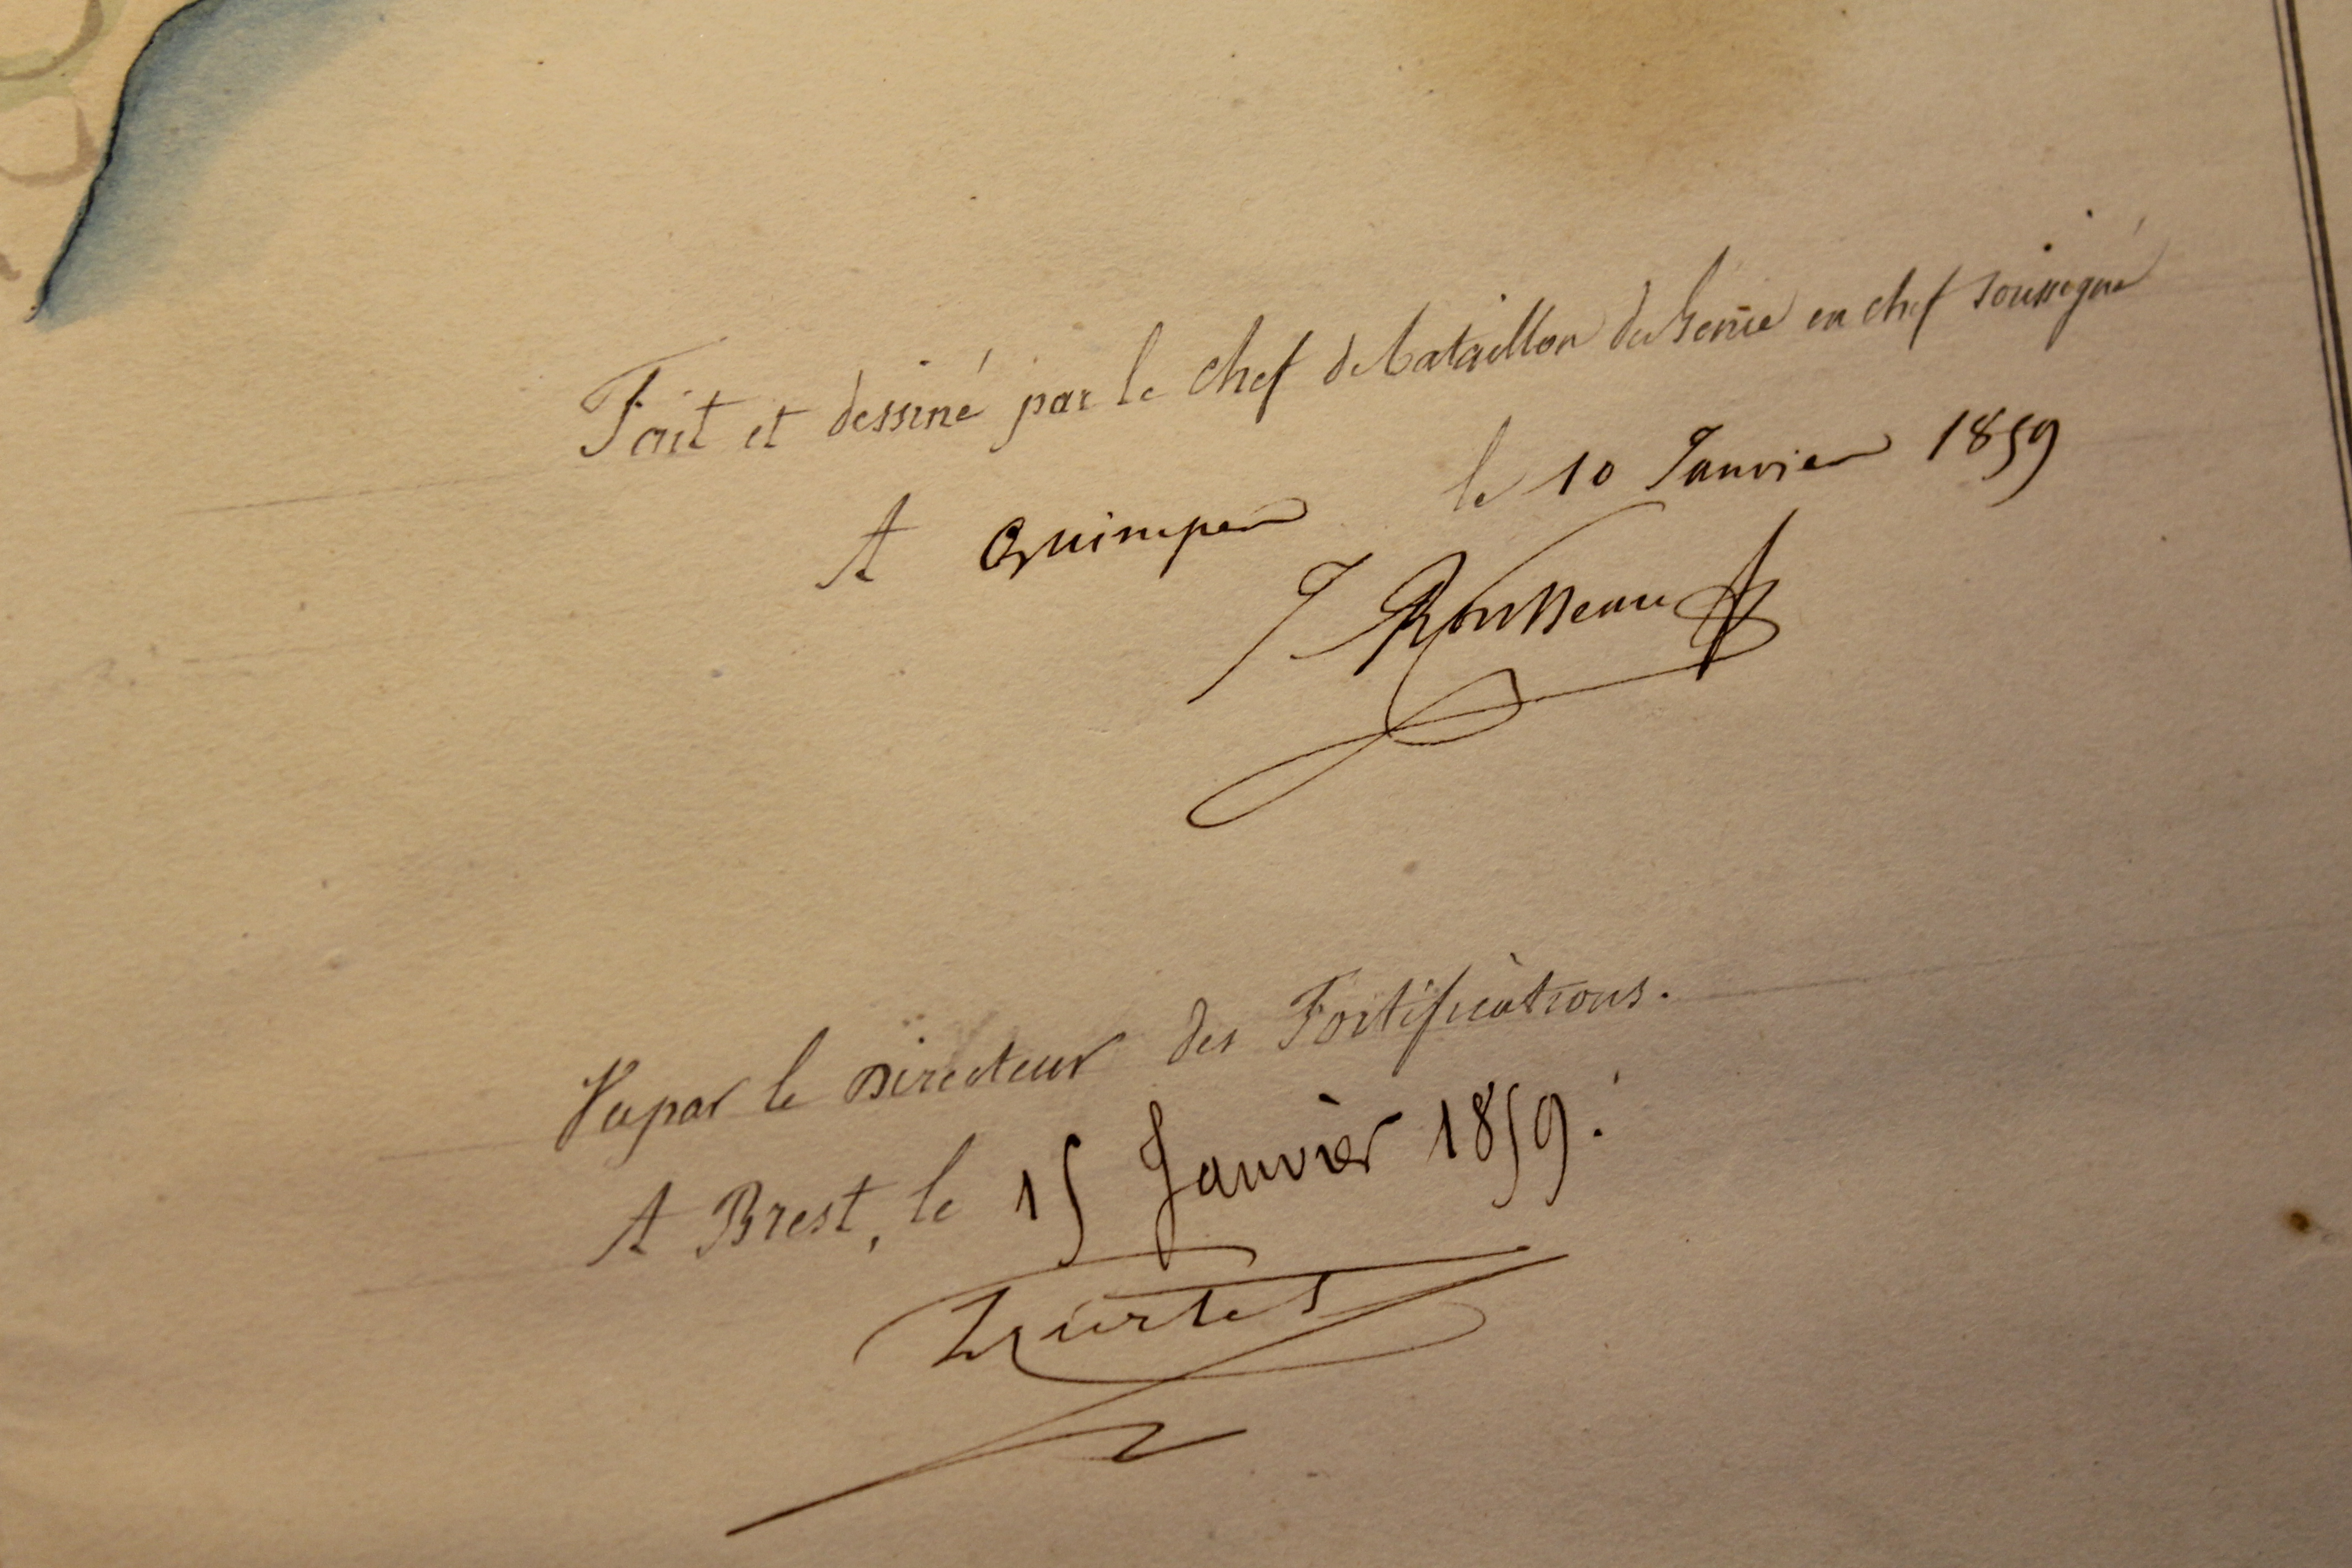 Fait et dessiné par le chef de bataillon du Génie en chef soussigné
A Quimper le 10 Janvier 1859
J Rousseau
Vu par le Directeur des Fortifications.
A Brest, le 15 Janvier 1859.